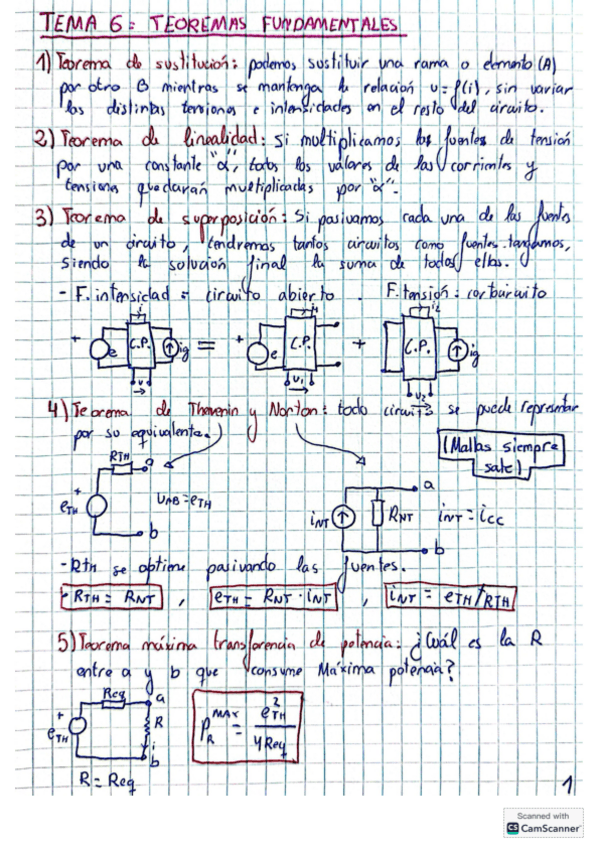 TEMA 6: TEOREMAS FUNDAMENTALES
1) Teorema de sustitución: podemos sustituir una rama o elemento (A)
por otro B mientras se mantenga la relación u=f(i), sin variar
las distintas tensiones e intensidades en el resto del circuito.
2) Teorema de linealidad: Si multiplicamos las fuentes de tensión
por una constante "α", todos los valores de las corrientes y
tensiones quedarán multiplicadas por "α".
3) Teorema de superposición: Si pasivamos cada una de las fuentes
de un circuito, tendremos tantos circuitos como fuentes tengamos,
siendo la solución final la suma de todas ellas.
- F. intensidad = circuito abierto. F. tensión: cortocircuito
i i1 i2
+ e C.P. ig = + e C.P. + C.P. ig
u u1 u2
4) Teorema de Thevenin y Norton: todo circuito se puede representar
por su equivalente.
(Mallas siempre
sale)
RTH a
+ eTH UAB = eTH
b
iNT RNT a iNT = icc
b
- Rth se obtiene pasivando las fuentes.
RTH = RNT , eTH = RNT · iNT , iNT = eTH/RTH
5) Teorema máxima transferencia de potencia: ¿Cuál es la R
entre a y b que consume Máxima potencia?
Req a
+ eTH R
i
b
PR MAX = eTH² / 4Req
R = Req
1
Scanned with
CS CamScanner